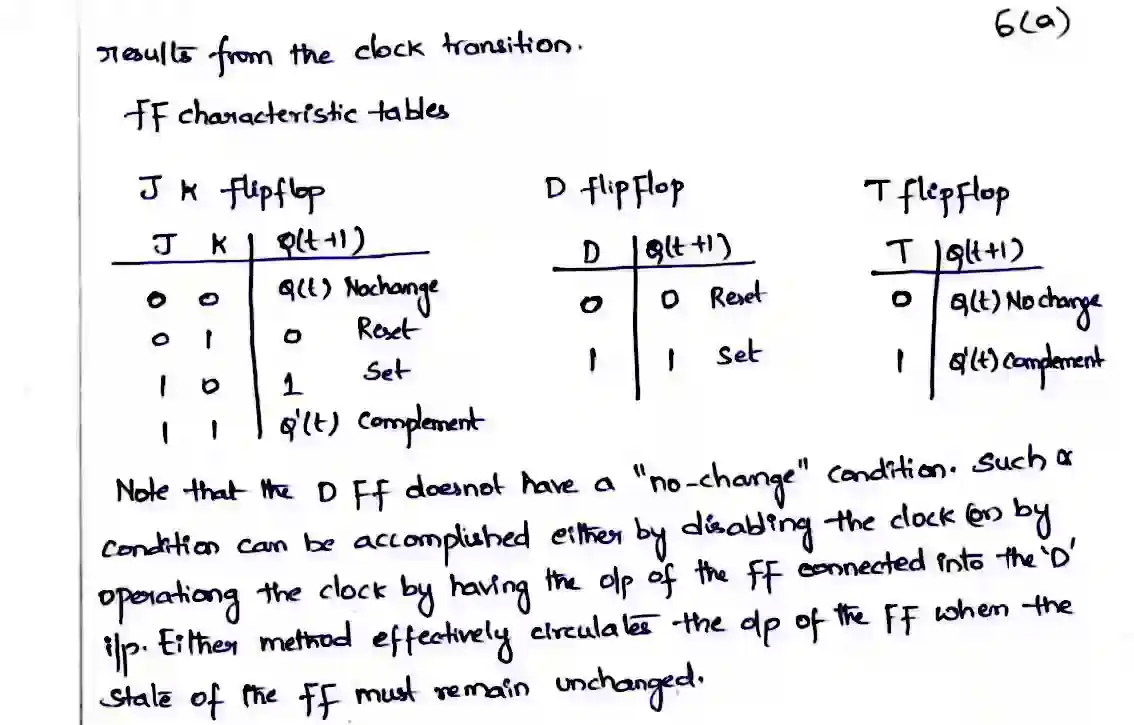 6(a)
results from the clock transition.
FF characteristic tables
J K flipflop D flipFlop T flipFlop
J K Q(t+1) D Q(t+1) T Q(t+1)
0 0 Q(t) Nochange 0 0 Reset 0 Q(t) No change
0 1 0 Reset
1 0 1 Set 1 1 Set 1 Q'(t) Complement
1 1 Q'(t) Complement
Note that the D FF doesnot have a "no-change" condition. Such a
condition can be accomplished either by disabling the clock (or) by
operationg the clock by having the o/p of the FF connected into the 'D'
i/p. Either method effectively circulates the o/p of the FF when the
state of the FF must remain unchanged.